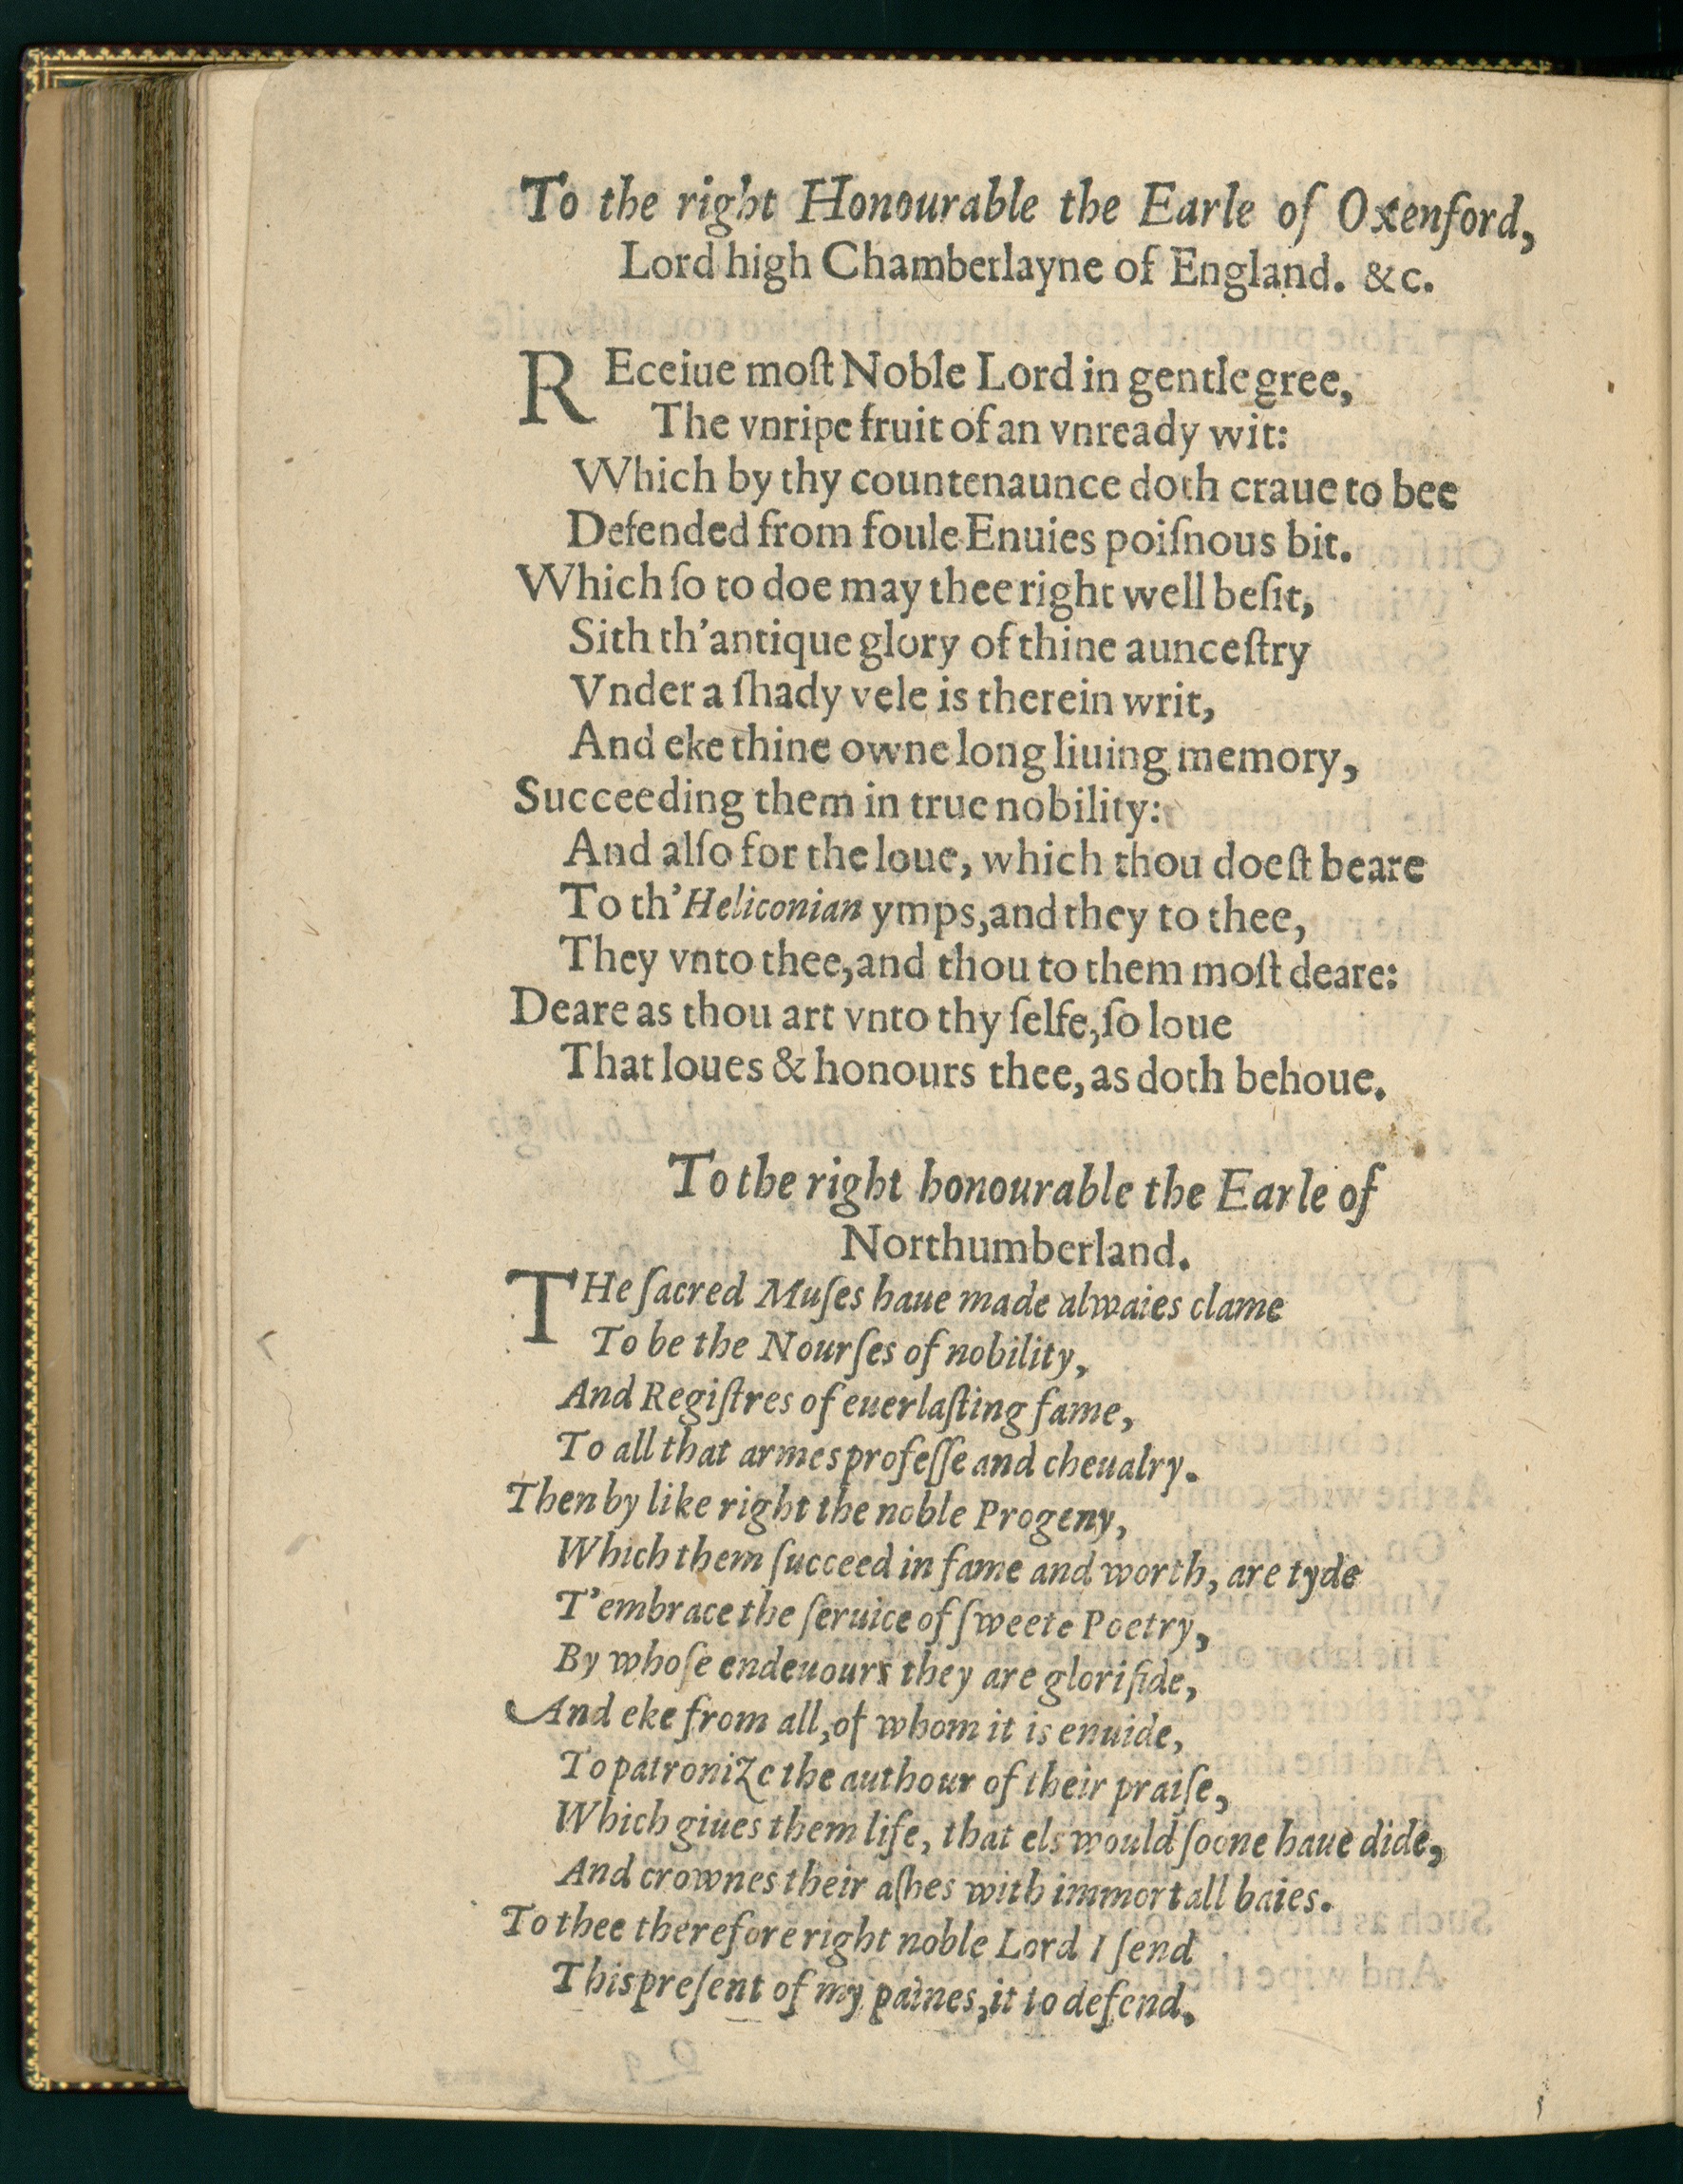 To the right Honourable the Earle of Oxenford,
Lord high Chamberlayne of England. &c.
REceiue moſt Noble Lord in gentle gree,
The vnripe fruit of an vnready wit:
Which by thy countenaunce doth craue to bee
Defended from foule Enuies poiſnous bit.
Which ſo to doe may thee right well beſit,
Sith th'antique glory of thine aunceſtry
Vnder a ſhady vele is therein writ,
And eke thine owne long liuing memory,
Succeeding them in true nobility:
And alſo for the loue, which thou doeſt beare
To th'Heliconian ymps, and they to thee,
They vnto thee, and thou to them moſt deare:
Deare as thou art vnto thy ſelfe, ſo loue
That loues & honours thee, as doth behoue.
To the right honourable the Earle of
Northumberland.
THe ſacred Muſes haue made alwaies clame
To be the Nourſes of nobility,
And Regiſtres of euerlaſting fame,
To all that armes profeſſe and cheualry.
Then by like right the noble Progeny,
Which them ſucceed in fame and worth, are tyde
T'embrace the ſeruice of ſweete Poetry,
By whoſe endeuours they are glorifide,
And eke from all, of whom it is enuide,
To patronize the authour of their praiſe,
Which giues them life, that els would ſoone haue dide,
And crownes their aſhes with immortall baies.
To thee therefore right noble Lord I ſend
This preſent of my paines, it to defend.